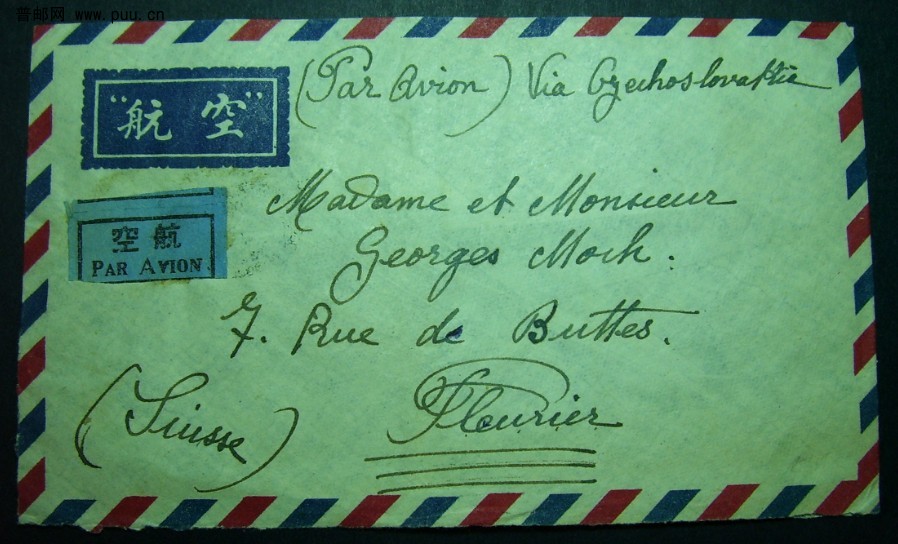 普邮网 www.puu.cn
(Par Avion) Via Czechoslovakia
"航空"
空航
PAR AVION
Madame et Monsieur
Georges Moch.
7. Rue de Buttes.
Fleurier
(Suisse)